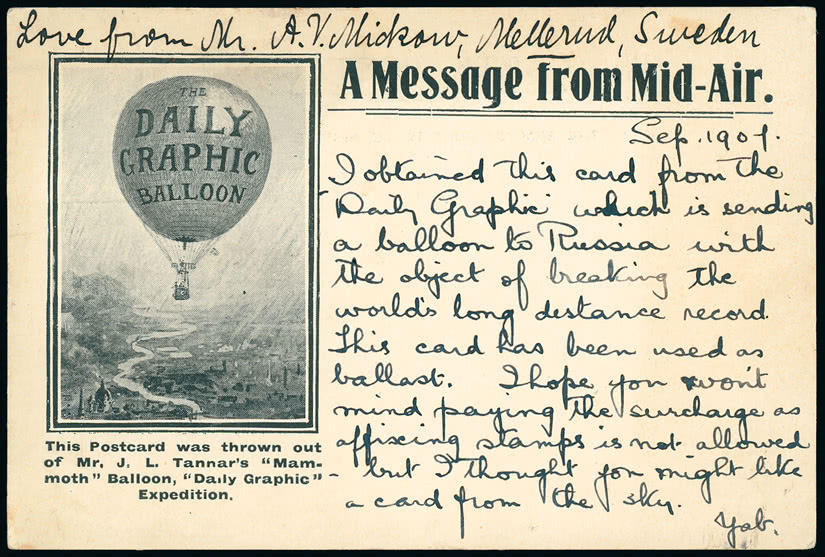 Love from Mr. A. V. Mickow, Mellerud, Sweden
A Message from Mid-Air.
THE
DAILY
GRAPHIC
BALLOON
Sep. 1907.
I obtained this card from the
"Daily Graphic" which is sending
a balloon to Russia with
the object of breaking the
world's long distance record.
This card has been used as
ballast. I hope you won't
mind paying the surcharge as
affixing stamps is not allowed
- but I thought you might like
a card from the sky.
Yab.
This Postcard was thrown out
of Mr. J. L. Tannar's "Mam-
moth" Balloon, "Daily Graphic"
Expedition.